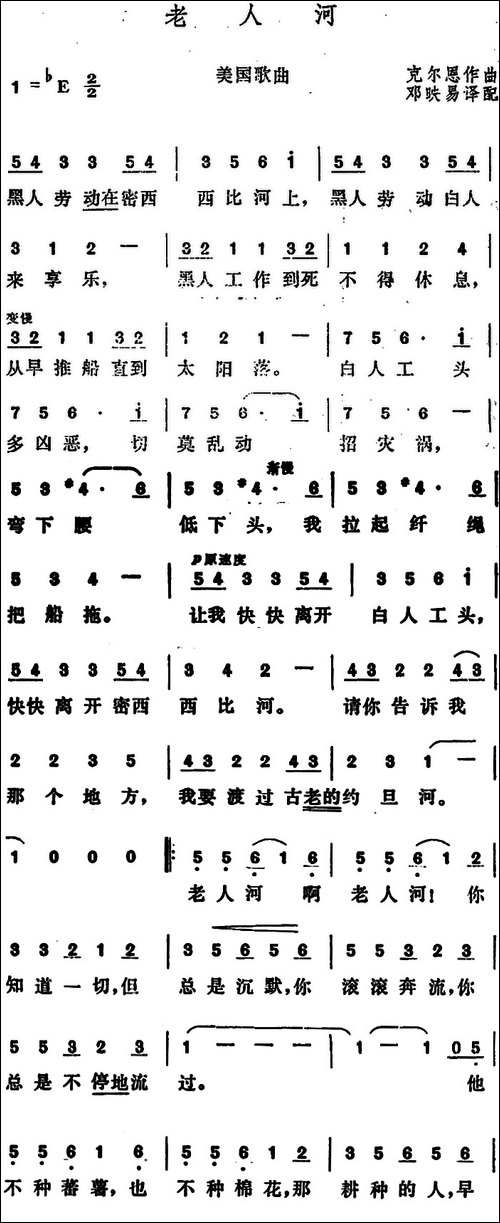 老人河
1=♭E 2/2 美国歌曲 克尔恩作曲
邓映易译配
5 4 3 3 5 4 | 3 5 6 i | 5 4 3 3 5 4 |
黑人劳动在密西 西比河上，黑人劳动白人
3 1 2 — | 3 2 1 1 3 2 | 1 1 2 4 |
来享乐， 黑人工作到死 不得休息，
变慢
3 2 1 1 3 2 | 1 2 1 — | 7 5 6 · i |
从早推船直到 太阳落。 白人工头
7 5 6 · i | 7 5 6 · i | 7 5 6 — |
多凶恶， 切 莫乱动 招灾祸，
渐慢
5 3 #4 · 6 | 5 3 #4 · 6 | 5 3 #4 · 6 |
弯下腰 低下头，我 拉起纤绳
p原速度
5 3 4 — | 5 4 3 3 5 4 | 3 5 6 i |
把船拖。 让我快快离开 白人工头，
5 4 3 3 5 4 | 3 4 2 — | 4 3 2 2 4 3 |
快快离开密西 西比河。 请你告诉我
2 2 3 5 | 4 3 2 2 4 3 | 2 3 1 — |
那个地方， 我要渡过古老的约旦河。
1 0 0 0 |: 5 5 6 1 6 | 5 5 6 1 2 |
老人河 啊 老人河！你
3 3 2 1 2 | 3 5 6 5 6 | 5 5 3 2 3 |
知道一切，但 总是沉默，你 滚滚奔流，你
5 5 3 2 3 | 1 — — — | 1 — 1 0 5 |
总是不停地流 过。 他
5 5 6 1 6 | 5 5 6 1 2 | 3 3 5 6 5 6 |
不种蕃薯，也 不种棉花，那 耕种的人，早